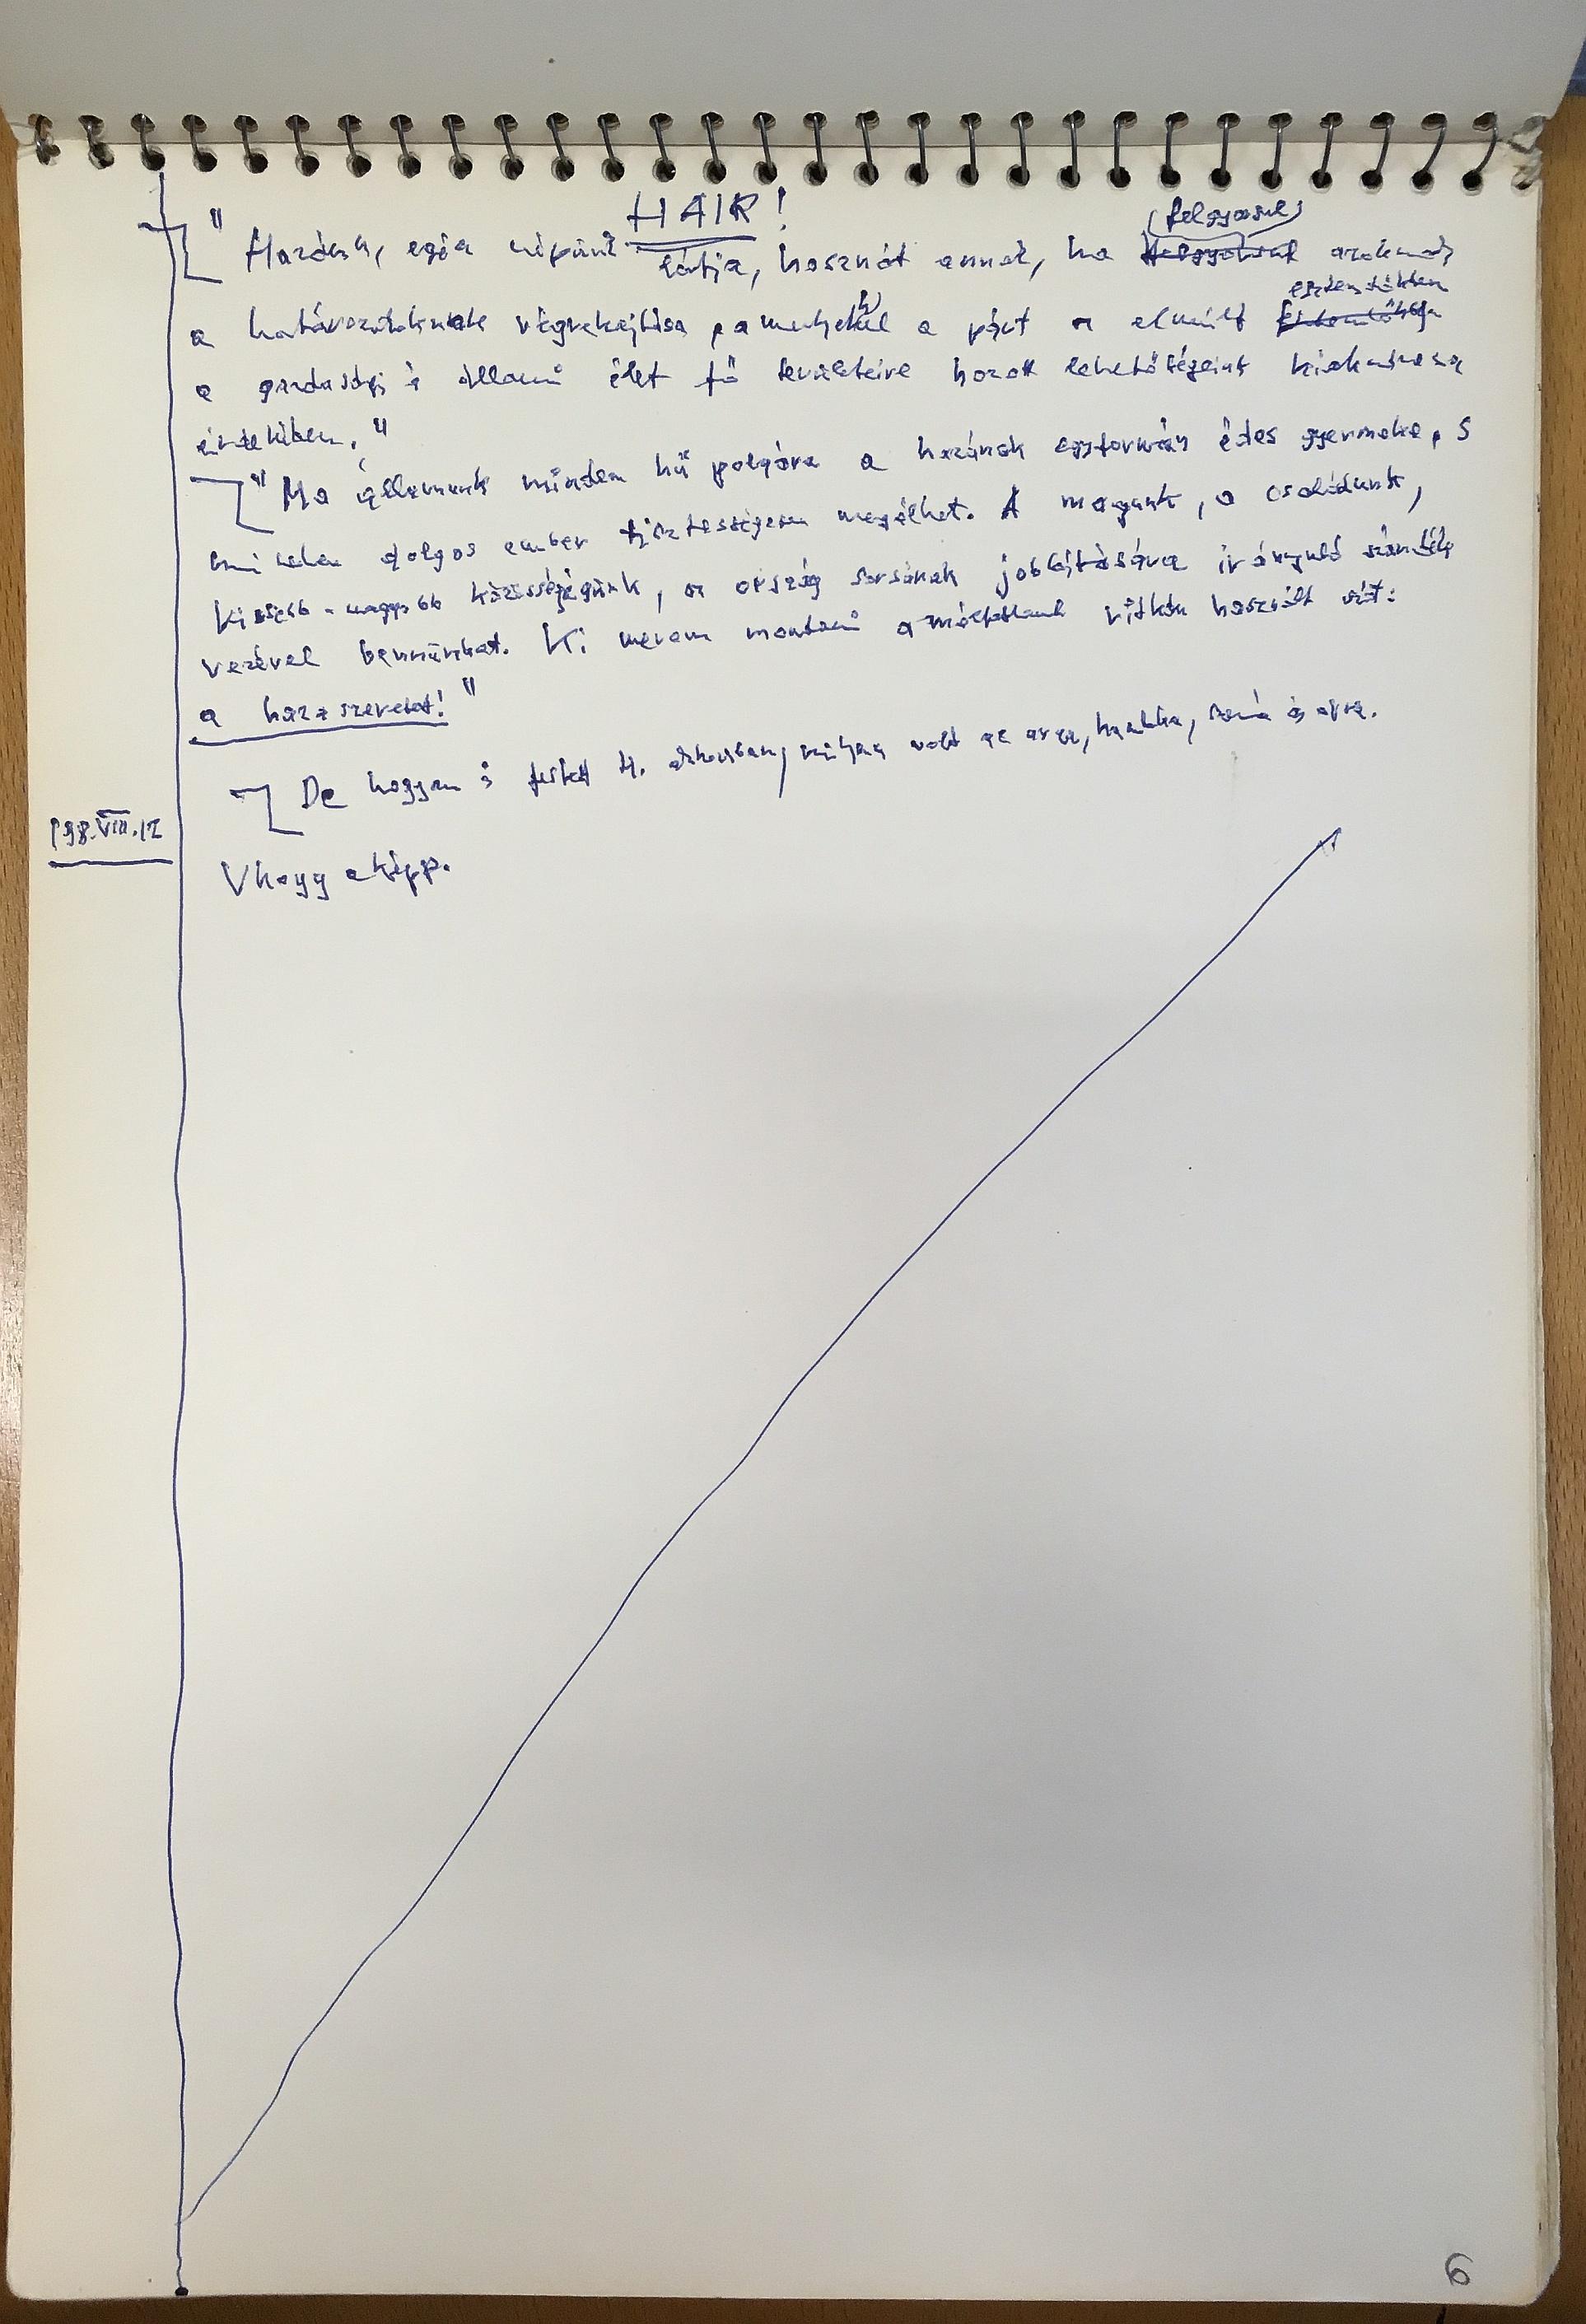 HAIR!
(felgyorsul)
" Hazánk, egész népünk látja, hasznát annak, ha azoknak
esztendőkben
a határozatoknak végrehajtása, amelyekkel a párt az elmúlt
a gazdasági és állami élet fő területeire hozott lehetőségeink kiaknázása
érdekében. "
" Ma államunk minden hű polgára a hazának egyformán édes gyermeke, s
minden dolgos ember tisztességesen megélhet. A magunk, a családunk,
kisebb-nagyobb közösségünk, az ország sorsának jobbítására irányuló szándék
vezérel bennünket. Ki merem mondani a méltatlanul ritkán használt szót:
a hazaszeretet! "
De hogyan is festett H. akkoriban, milyen volt az arca, haja és
198.VIII.12
Vhogy eképp.
6